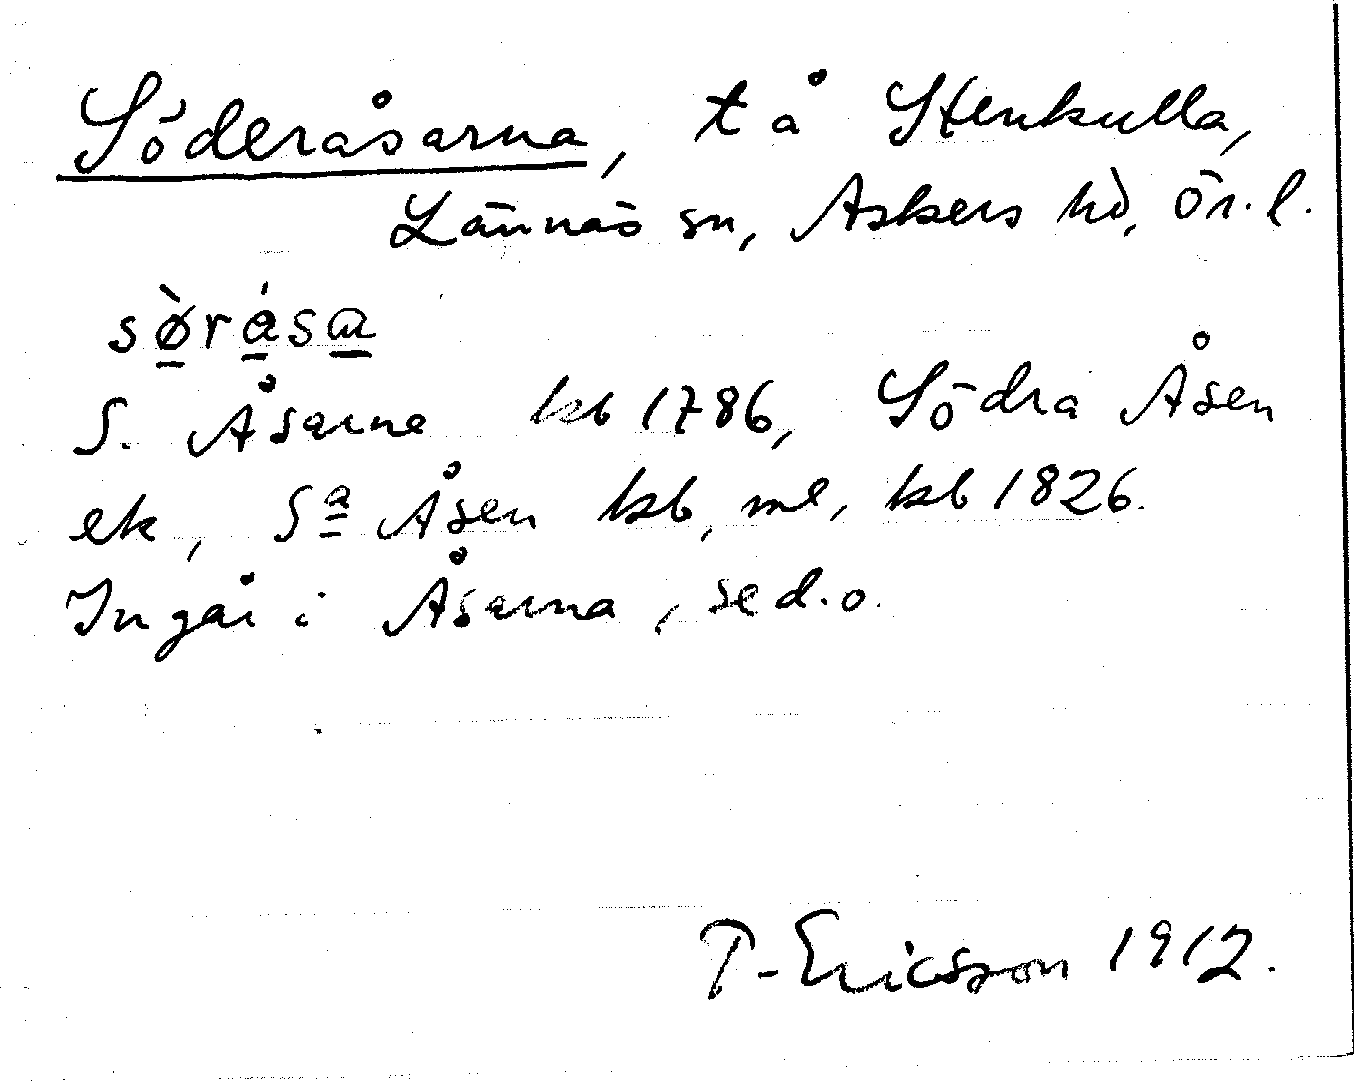 Söderåsarna, t å Stenkulla,
Lännäs sn, Askers hd, Ör. l.
sø̀råsa
S. Åsarne kb 1786, Södra Åsen
ek, Sa Åsen kb, ml, kb 1826.
Ingår i Åsarna, se d. o.
T. Ericsson 1912.